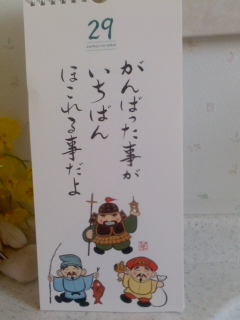 29
がんばった事が
いちばん
ほこれる事だよ